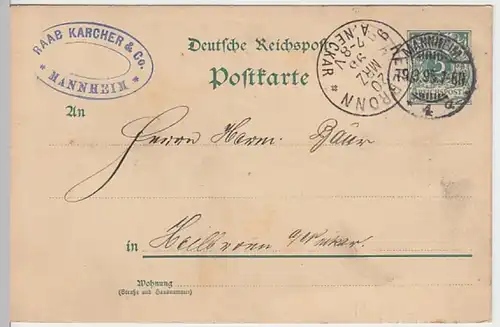 RAAB KARCHER & Co.
* MANNHEIM *
Deutsche Reichspost
Postkarte
HEILBRONN
A. NECKAR *
20 MRZ
7-8 V
MANNHEIM
An
Herrn Herm. Baur
in Heilbronn a/Neckar.
Wohnung
(Straße und Hausnummer)